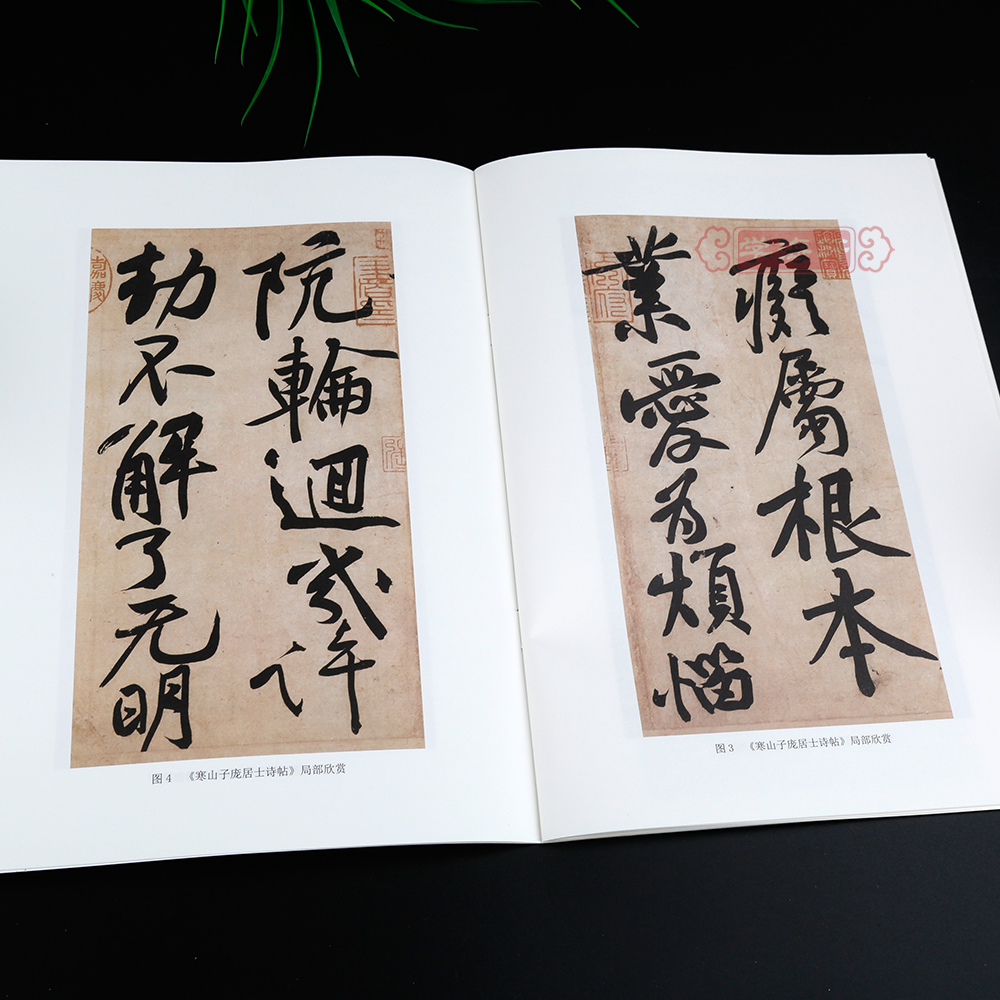 癡屬根本
業愛為煩惱
图 3 《寒山子庞居士诗帖》局部欣赏
阬輪迴幾許
劫不解了无明
嘉慶
图 4 《寒山子庞居士诗帖》局部欣赏